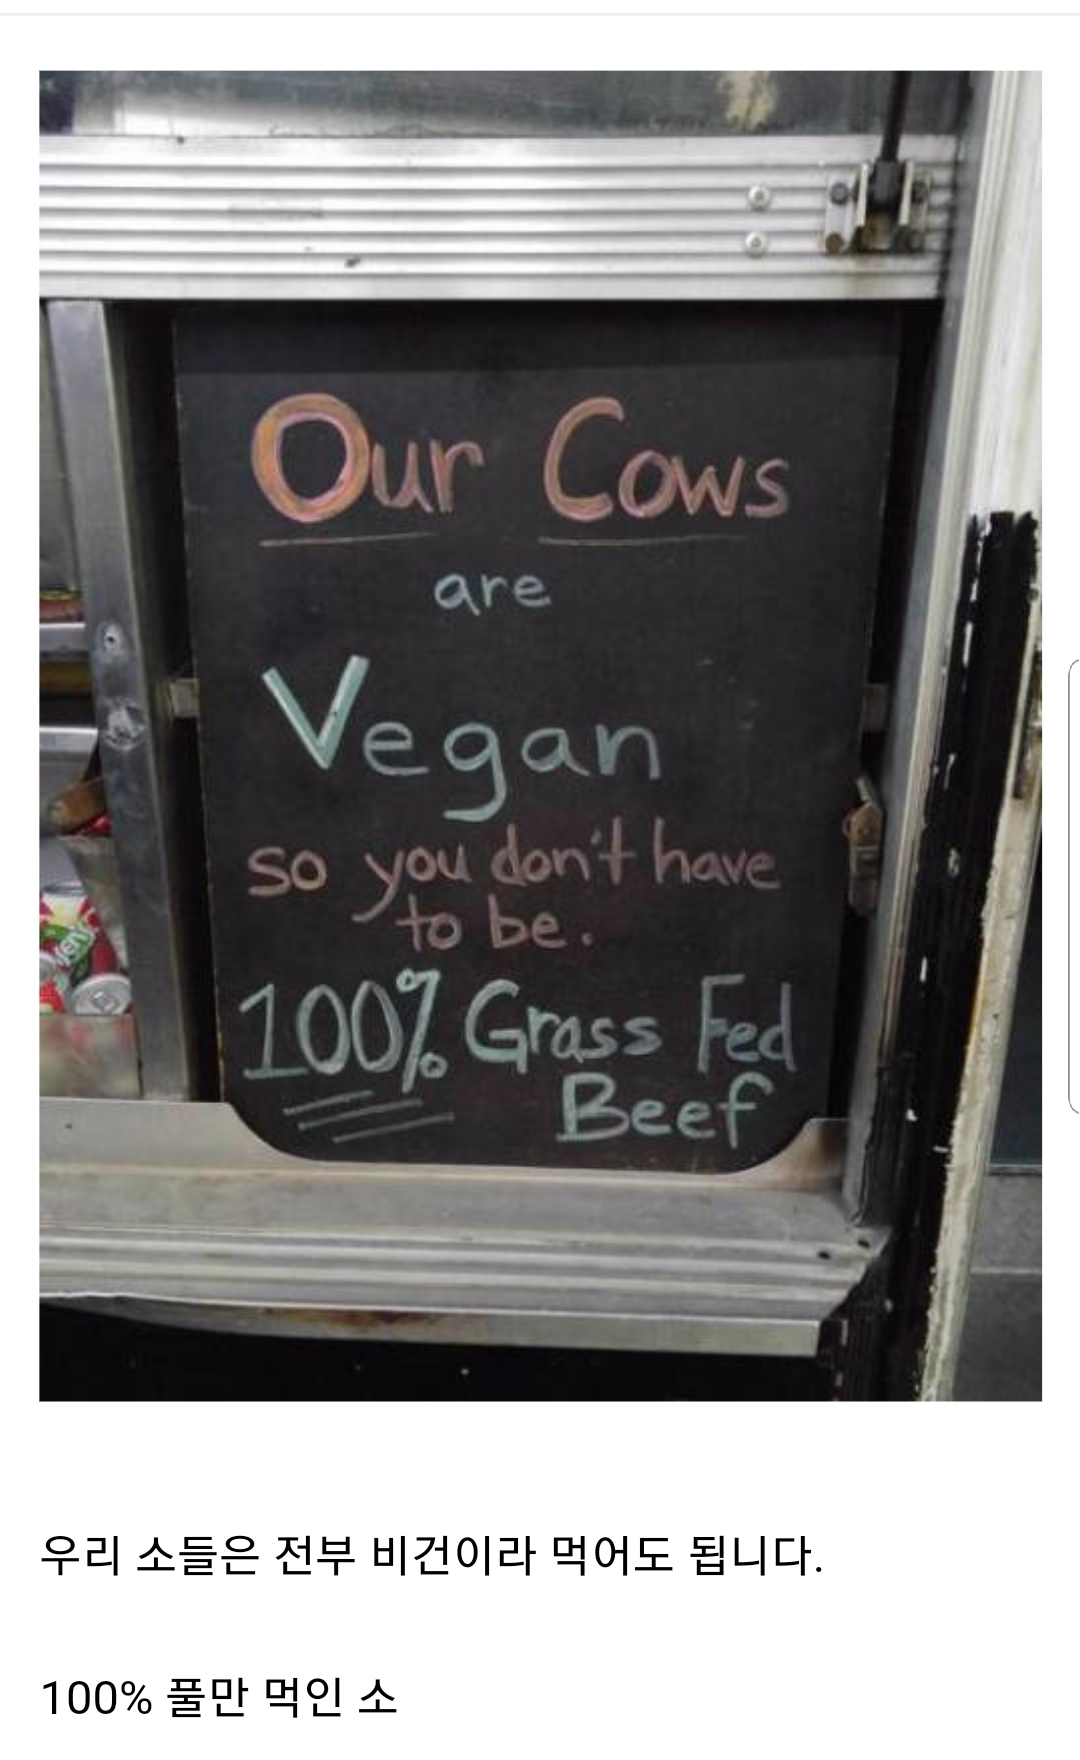 Our Cows
are
Vegan
so you don't have
to be.
100% Grass Fed
Beef
우리 소들은 전부 비건이라 먹어도 됩니다.
100% 풀만 먹인 소